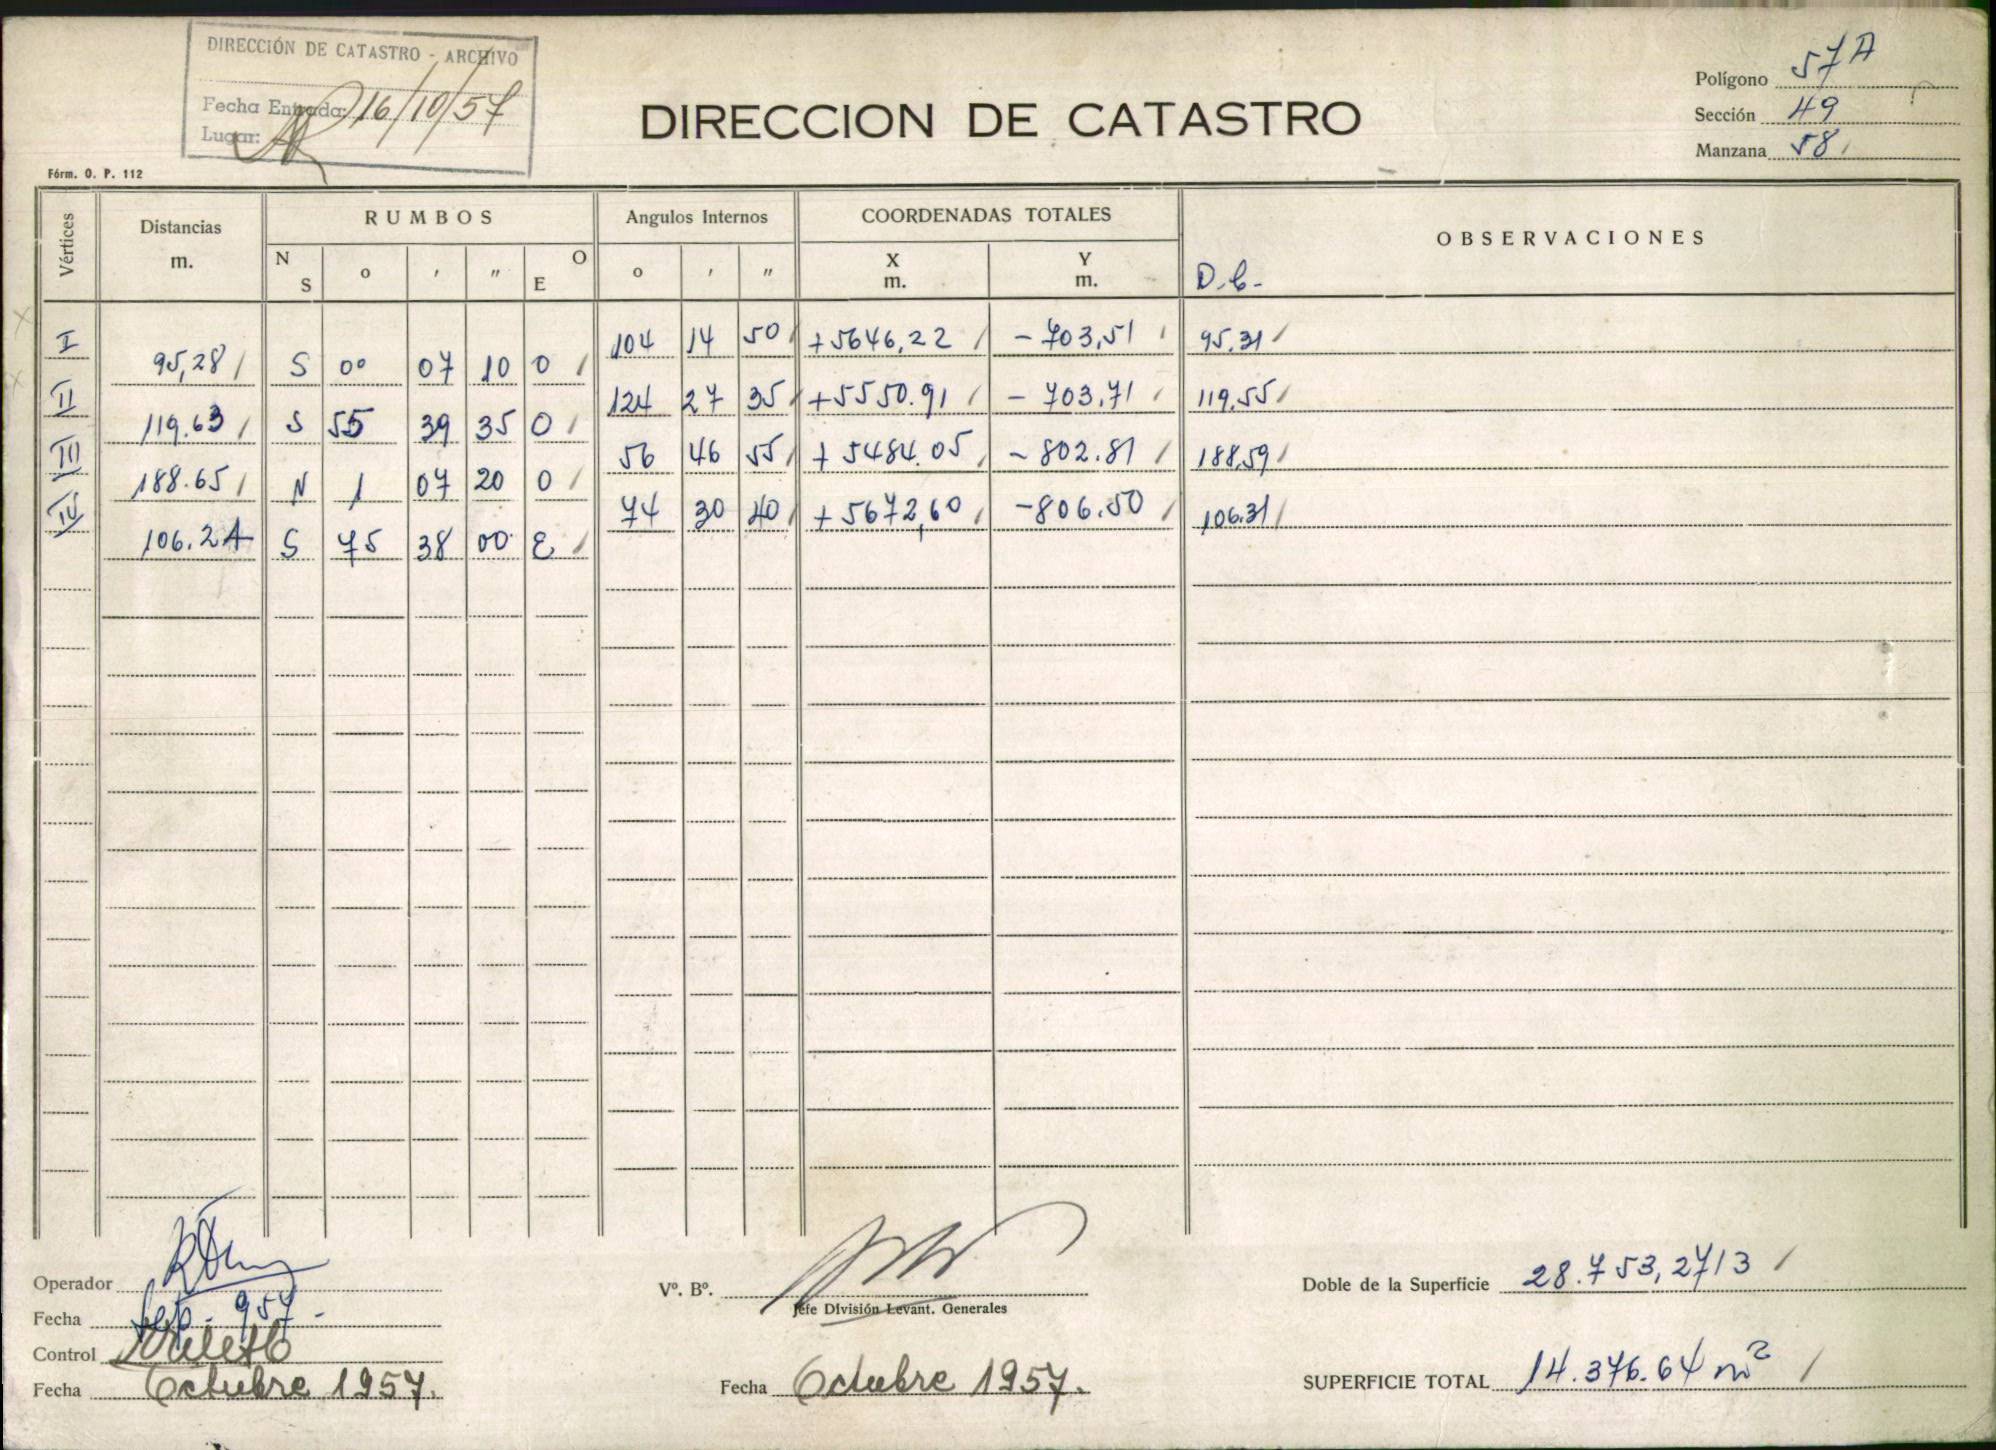 DIRECCIÓN DE CATASTRO - ARCHIVO
Fecha Entrada: 16/10/57
Lugar:
DIRECCION DE CATASTRO
Polígono 57A
Sección 49
Manzana 58
Fórm. O. P. 112
Vértices Distancias m. RUMBOS Angulos Internos COORDENADAS TOTALES OBSERVACIONES
N S o ' " O E o ' " X m. Y m. D.b.
I 104 14 50 +5646,22 - 703,51 95.31
95,28 S 00 07 10 O
II 124 27 35 +5550.91 - 703.71 119.55
119.63 S 55 39 35 O
III 56 46 55 + 5484.05 - 802.81 188.59
188.65 N 1 07 20 O
IV 74 30 40 + 5672,60 -806.50 106.31
106.24 S 75 38 00 E
Operador
Fecha Sep. 957.
Control
Fecha Octubre 1957.
Vº. Bº.
Jefe División Levant. Generales
Fecha Octubre 1957.
Doble de la Superficie 28.753,2713
SUPERFICIE TOTAL 14.376.64 m²